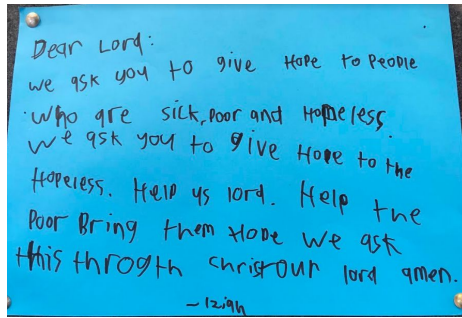 Dear Lord:
we ask you to give Hope to People
who are sick, Poor and Homeless.
we ask you to give Hope to the
Hopeless. Help us lord. Help the
Poor Bring them Hope we ask
this throgth christ our lord amen.
~ Izigh